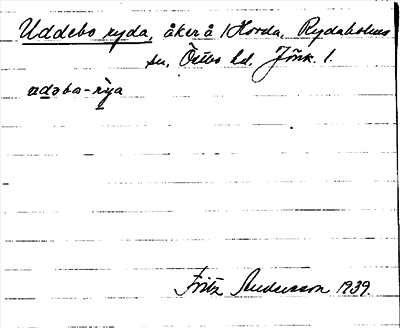 Uddebo ryda, åker å Horda, Rydaholms
sn, Östbo hd. Jönk. l.
udəbo-rya
Fritz Andersson 1939